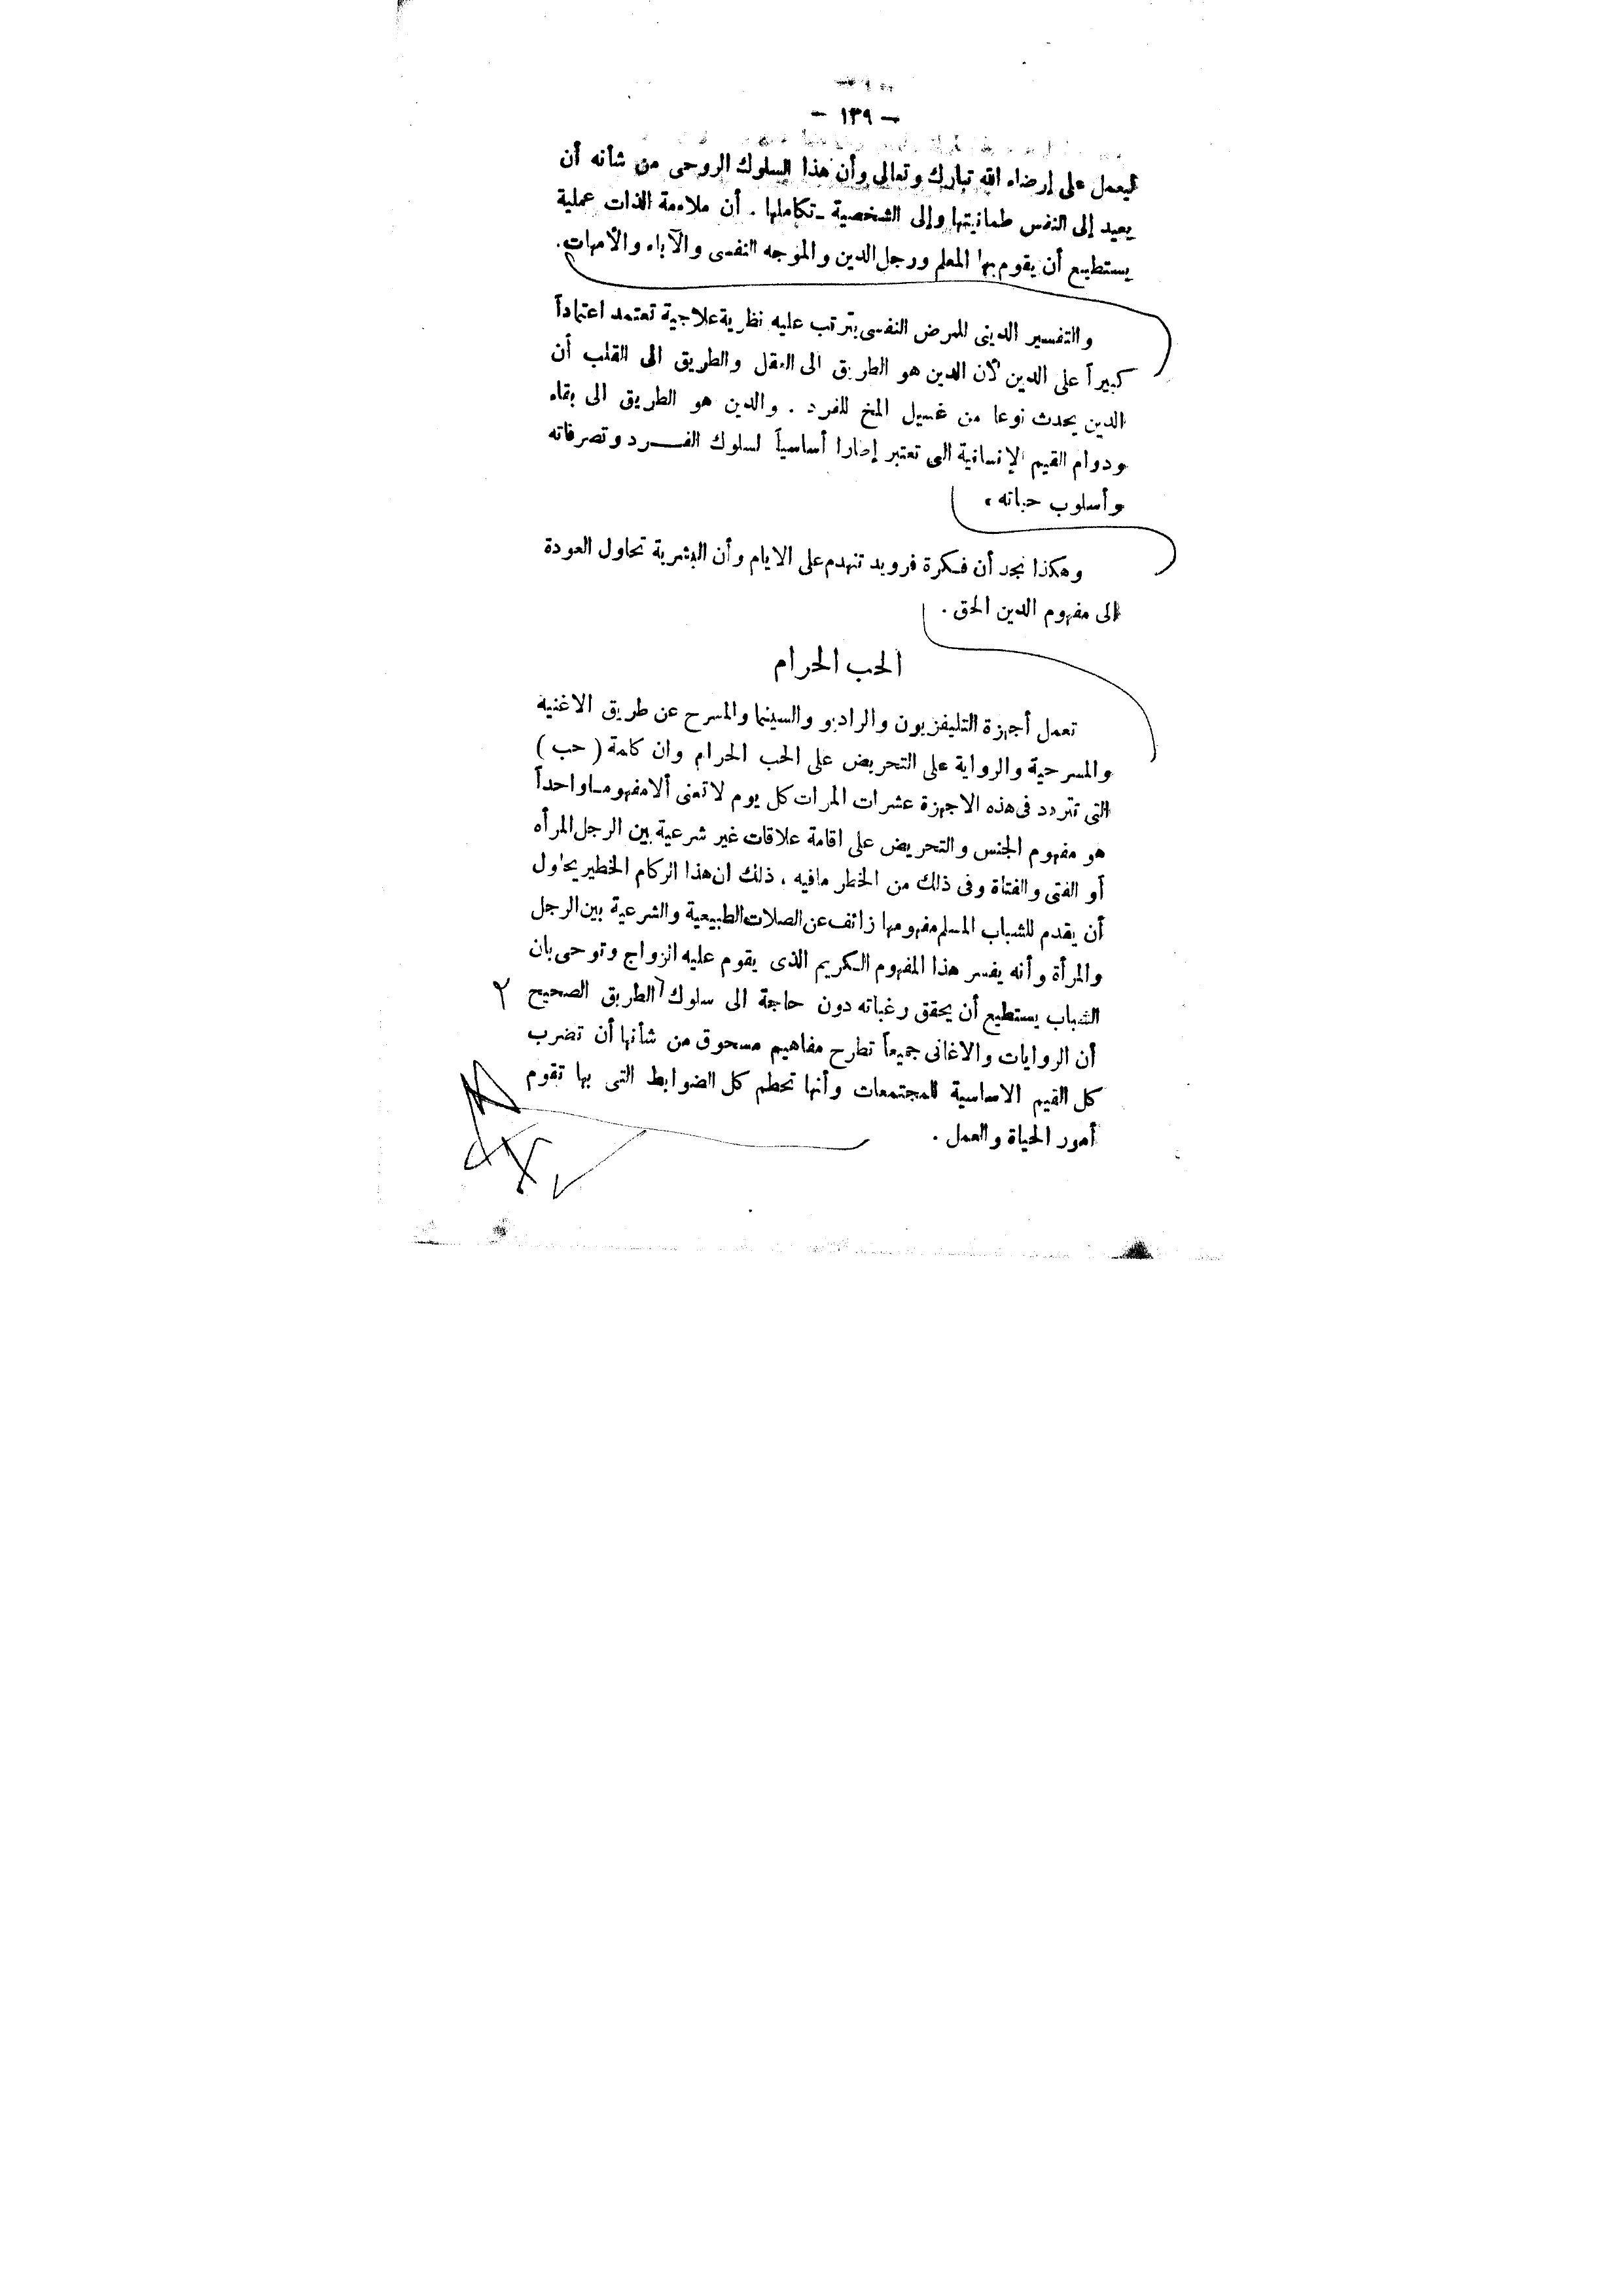 — ١٣٩ —
ليعمل على إرضاء الله تبارك وتعالى وأن هذا السلوك الروحى من شأنه أن
يعيد إلى النفس طمانيتها وإلى الشخصية تكاملها . أن ملاءمة الذات عملية
يستطيع أن يقوم بها المعلم ورجل الدين والموجه النفسى والآباء والأمهات .
والتفسير الدينى للمرض النفسى يترتب عليه نظرية علاجية تعتمد اعتماداً
كبيراً على الدين لأن الدين هو الطريق الى العقل والطريق الى القلب أن
الدين يحدث نوعا من غسيل المخ للفرد . والدين هو الطريق الى بقاء
ودوام القيم الإنسانية التى تعتبر إطارا أساسياً لسلوك الفرد وتصرفاته
وأسلوب حياته .
وهكذا نجد أن فكرة فرويد تنهدم على الايام وأن البشرية تحاول العودة
الى مفهوم الدين الحق .
الحب الحرام
تعمل أجهزة التليفزيون والراديو والسينما والمسرح عن طريق الاغنية
والمسرحية والرواية على التحريض على الحب الحرام وان كلمة ( حب )
التى تتردد فى هذه الاجهزة عشرات المرات كل يوم لا تعنى ألا مفهوما واحداً
هو مفهوم الجنس والتحريض على اقامة علاقات غير شرعية بين الرجل المرأه
أو الفتى والفتاة وفى ذلك من الخطر مافيه . ذلك ان هذا الركام الخطير يحاول
أن يقدم للشباب المسلم مفهومها زائف عن الصلات الطبيعية والشرعية بين الرجل
والمرأة وأنه يفسر هذا المفهوم الكريم الذى يقوم عليه الزواج وتوحى بان
الشباب يستطيع أن يحقق رغباته دون حاجة الى سلوك الطريق الصحيح ٢
أن الروايات والاغانى جميعاً تطرح مفاهيم مسحوق من شأنها أن تضرب
كل القيم الاساسية للمجتمعات وأنها تحطم كل الضوابط التى بها تقوم
أمور الحياة والعمل .